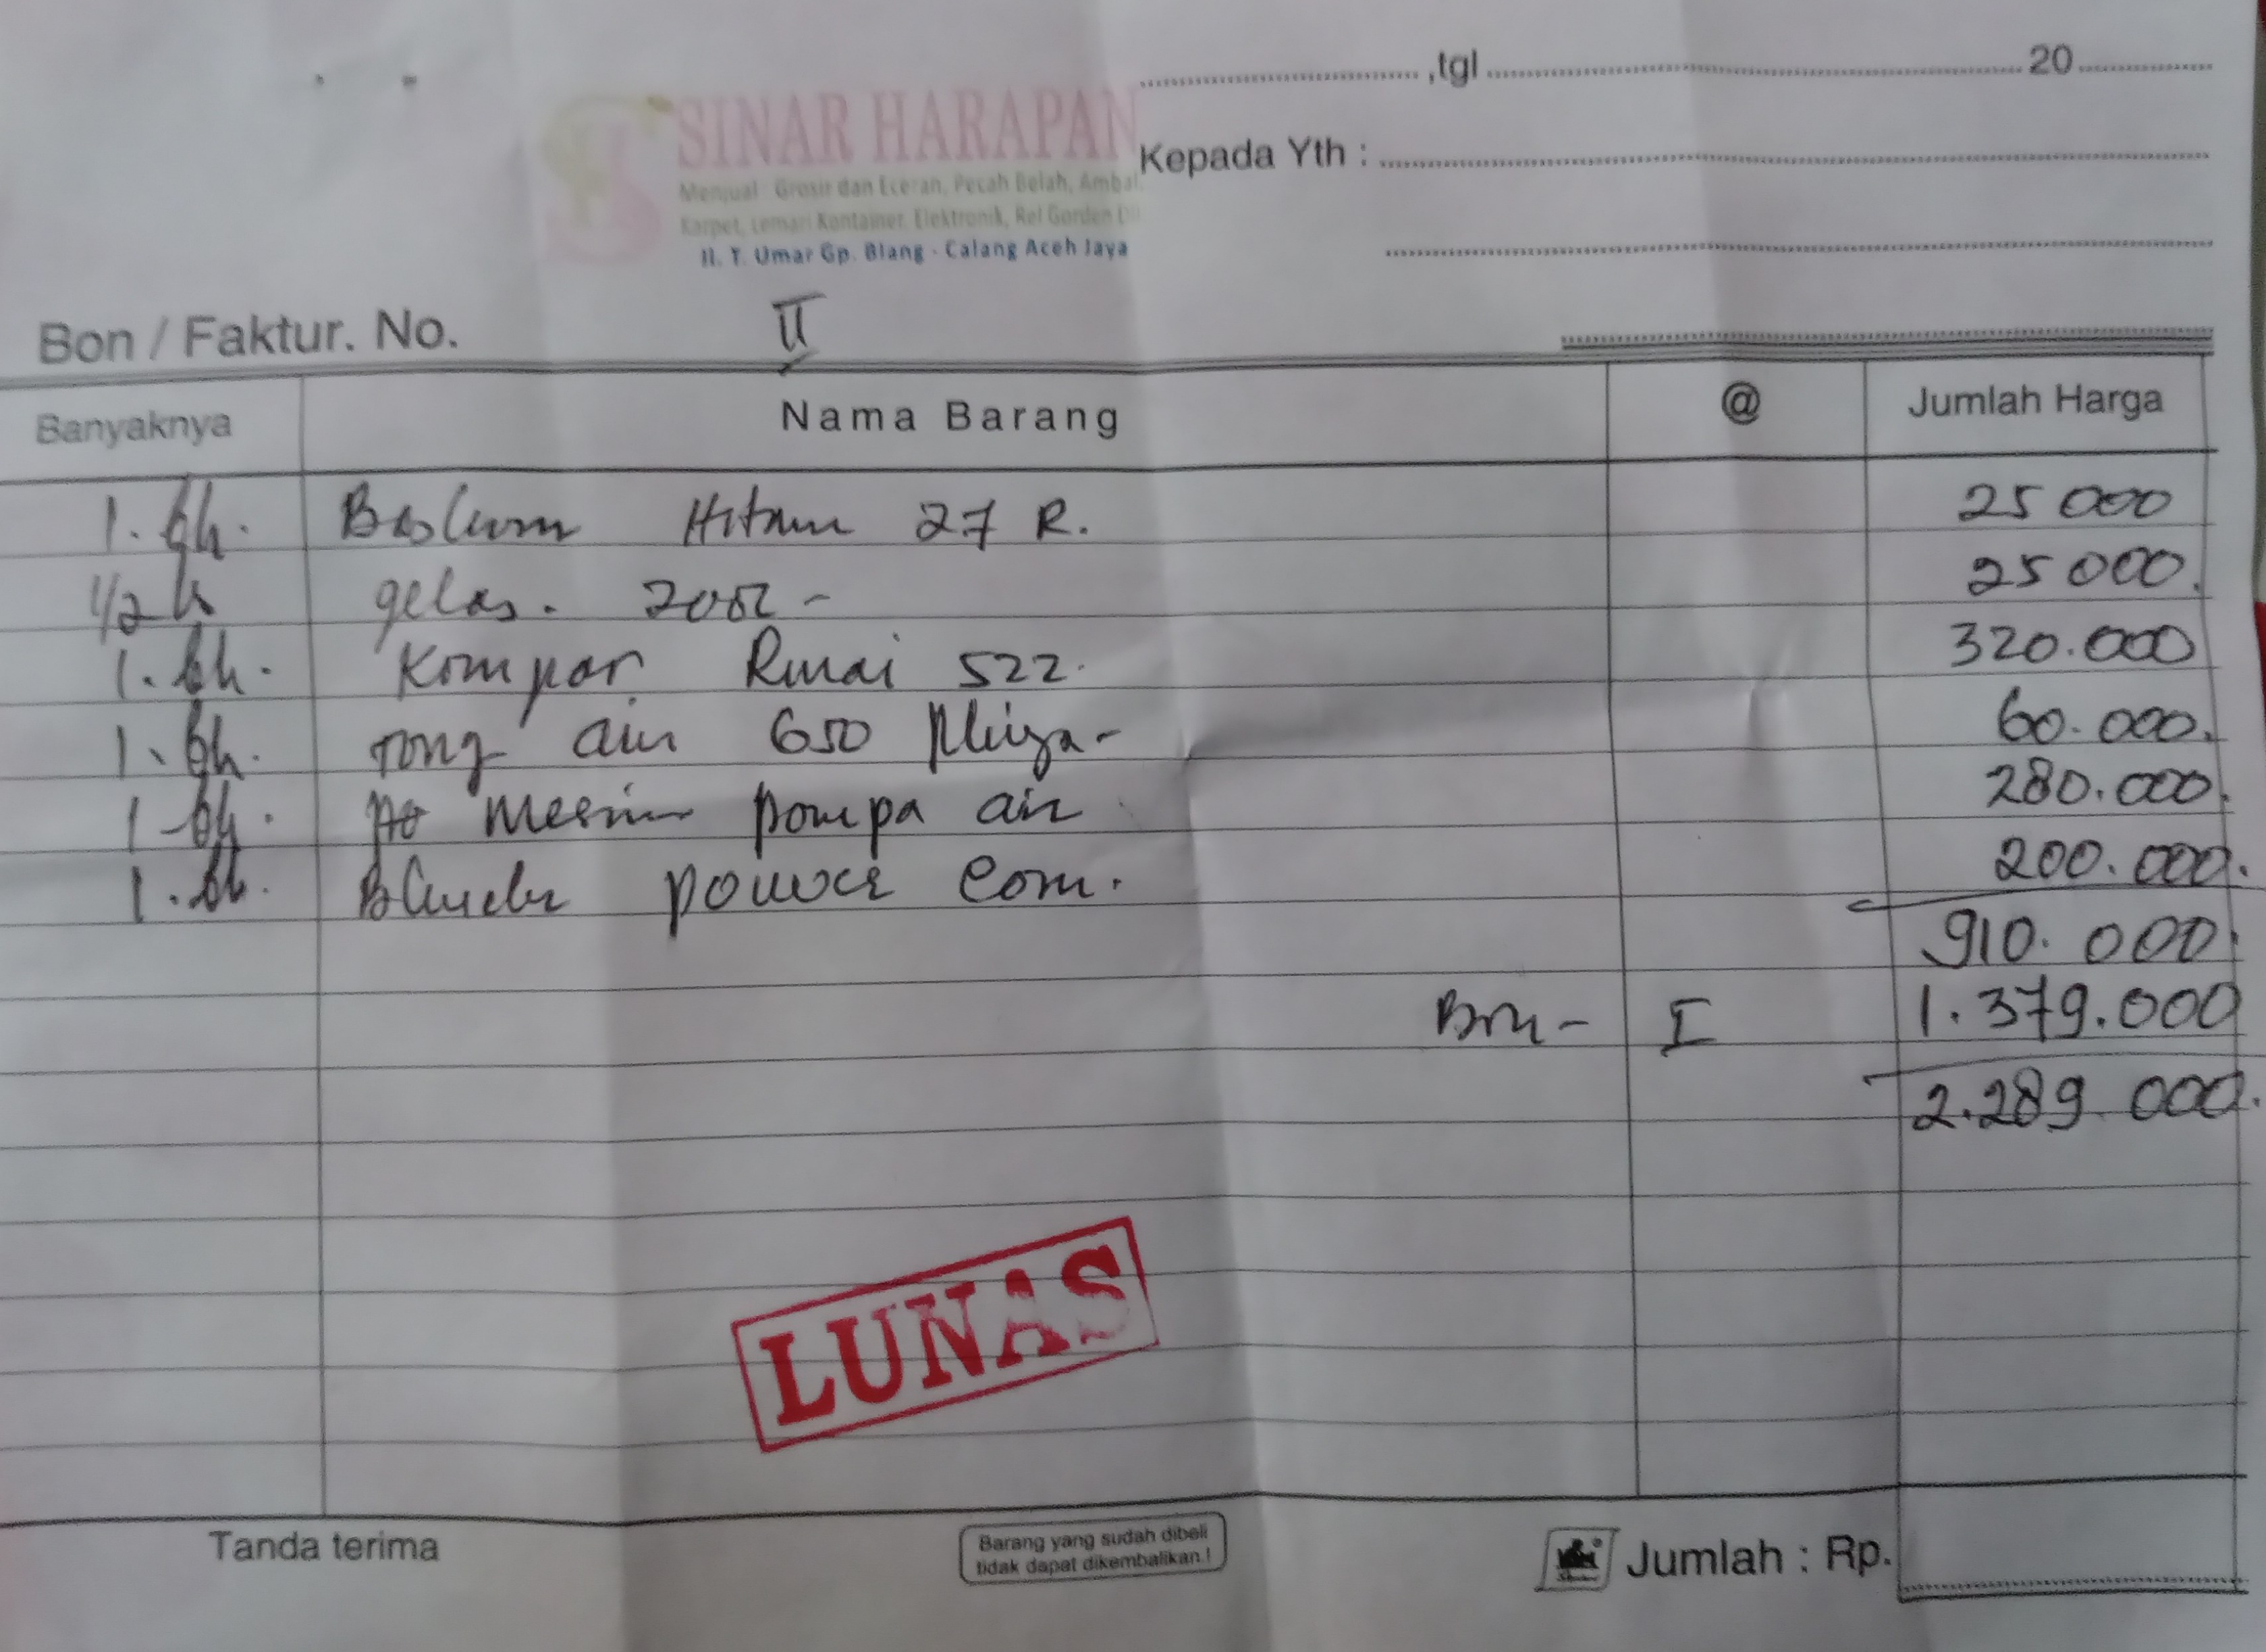 ..............................,tgl..............................20...............
SINAR HARAPAN
Kepada Yth :
Menjual : Grosir dan Eceran, Pecah Belah, Ambal,
Karpet, Lemari Kontainer, Elektronik, Rel Gorden Dll
Jl. T. Umar Gp. Blang - Calang Aceh Jaya
Bon / Faktur. No. II
Banyaknya Nama Barang @ Jumlah Harga
1. bh. Baskom Hitam 27 R. 25 000
1/2 gelas. 25 000.
1. bh. Kompor Rinai 522. 320.000
1. bh. Tong air 650 60.000.
1 bh. Mesin pompa air 280.000.
1. bh. Blender power Com. 200.000.
910. 000.
Bon - I 1.379.000
2.289 000.
LUNAS
Tanda terima
Barang yang sudah dibeli
tidak dapat dikembalikan.!
Jumlah : Rp.